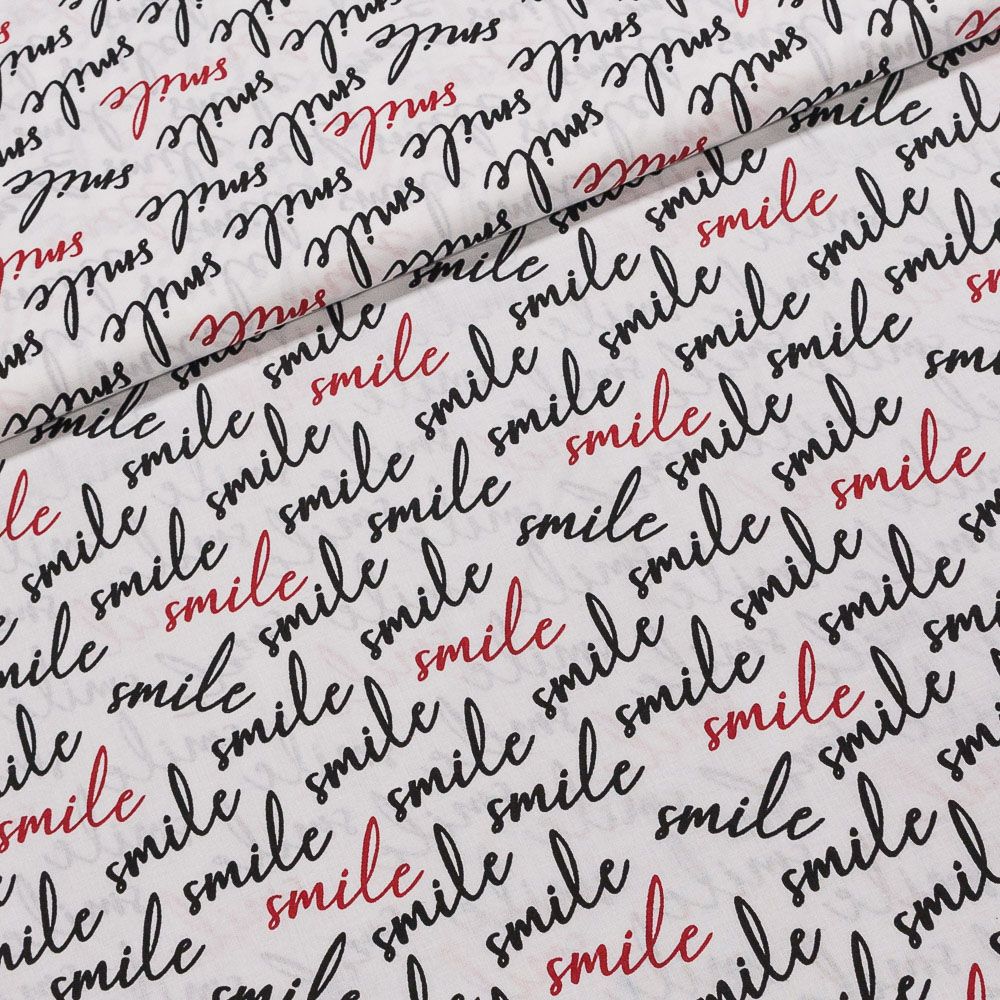 smile smile smile smile smile smile
smile smile smile smile smile smile
smile smile smile smile smile smile
smile smile smile smile smile
smile smile smile smile smile
smile smile smile smile smile
smile smile smile smile smile
smile smile smile smile smile
smile smile smile smile smile
smile smile smile smile smile
smile smile smile smile smile
smile smile smile smile smile
smile smile smile smile smile
smile smile smile smile